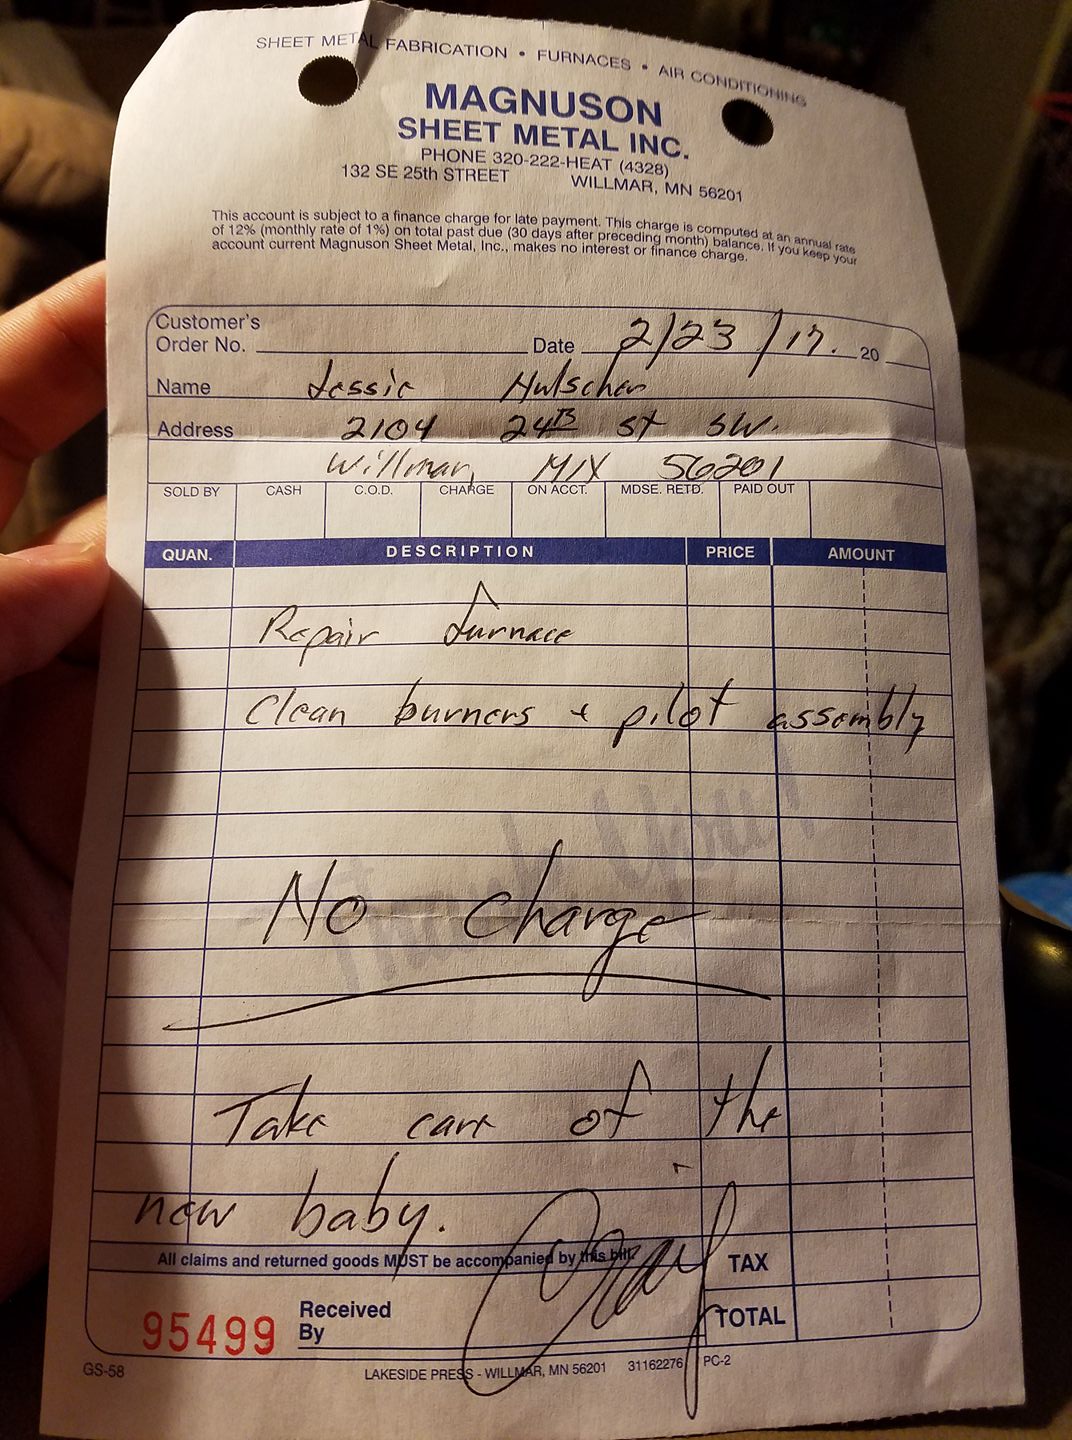 SHEET METAL FABRICATION • FURNACES • AIR CONDITIONING
MAGNUSON
SHEET METAL INC.
PHONE 320-222-HEAT (4328)
132 SE 25th STREET WILLMAR, MN 56201
This account is subject to a finance charge for late payment. This charge is computed at an annual rate
of 12% (monthly rate of 1%) on total past due (30 days after preceding month) balance. If you keep your
account current Magnuson Sheet Metal, Inc., makes no interest or finance charge.
Customer's
Order No. Date 2/23/17. 20
Name Jessie Hulscher
Address 2104 24th St SW.
Willmar, MN 56201
SOLD BY CASH C.O.D. CHARGE ON ACCT. MDSE. RETD. PAID OUT
QUAN. DESCRIPTION PRICE AMOUNT
Repair furnace
Clean burners + pilot assembly
Thank You!
No Charge
Take care of the
new baby.
All claims and returned goods MUST be accompanied by this bill.
TAX
95499 Received
By
TOTAL
GS-58 LAKESIDE PRESS - WILLMAR, MN 56201 31162276 PC-2